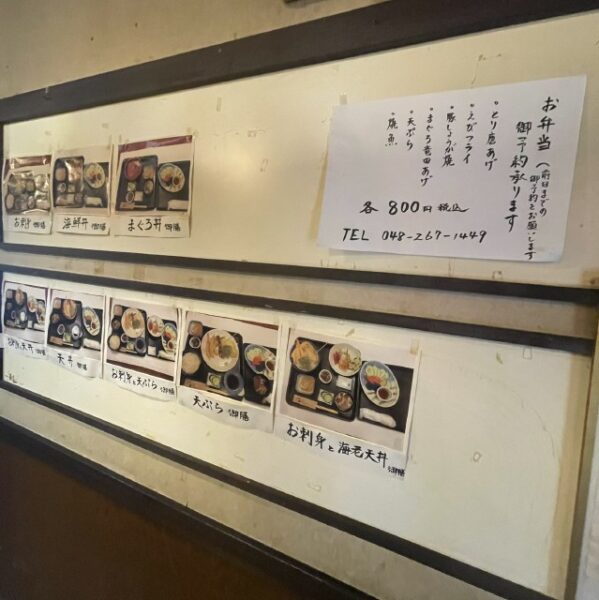 お弁当
御予約承ります
(前日までの
御予約をお願いします
・とり唐あげ
・えびフライ
・豚しょうが焼
・まぐろ竜田あげ
・天ぷら
・焼魚
各 800円 税込
TEL 048-267-1449
お刺身 御膳
海鮮丼 御膳
まぐろ丼 御膳
天丼 御膳
お刺身と天ぷら 御膳
天ぷら 御膳
お刺身と海老天丼 御膳